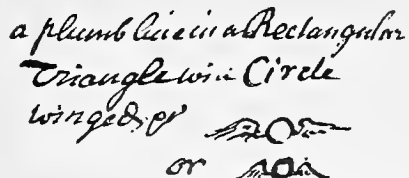 a plumb line in a Rectangular
Triangle win Circle
winged, or
or